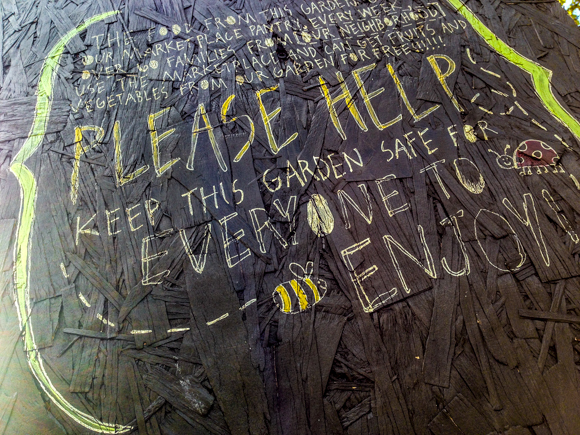 THE FOOD FROM THIS GARDEN
OUR MARKETPLACE PANTRY. EVERY WEEK
OVER FAMILIES FROM OUR NEIGHBORHOOD
USE THIS MARKETPLACE AND CAN GET FRUITS AND
VEGETABLES FROM OUR GARDEN FOR FREE!!!!!
PLEASE HELP
KEEP THIS GARDEN SAFE FOR
EVERYONE TO
ENJOY!